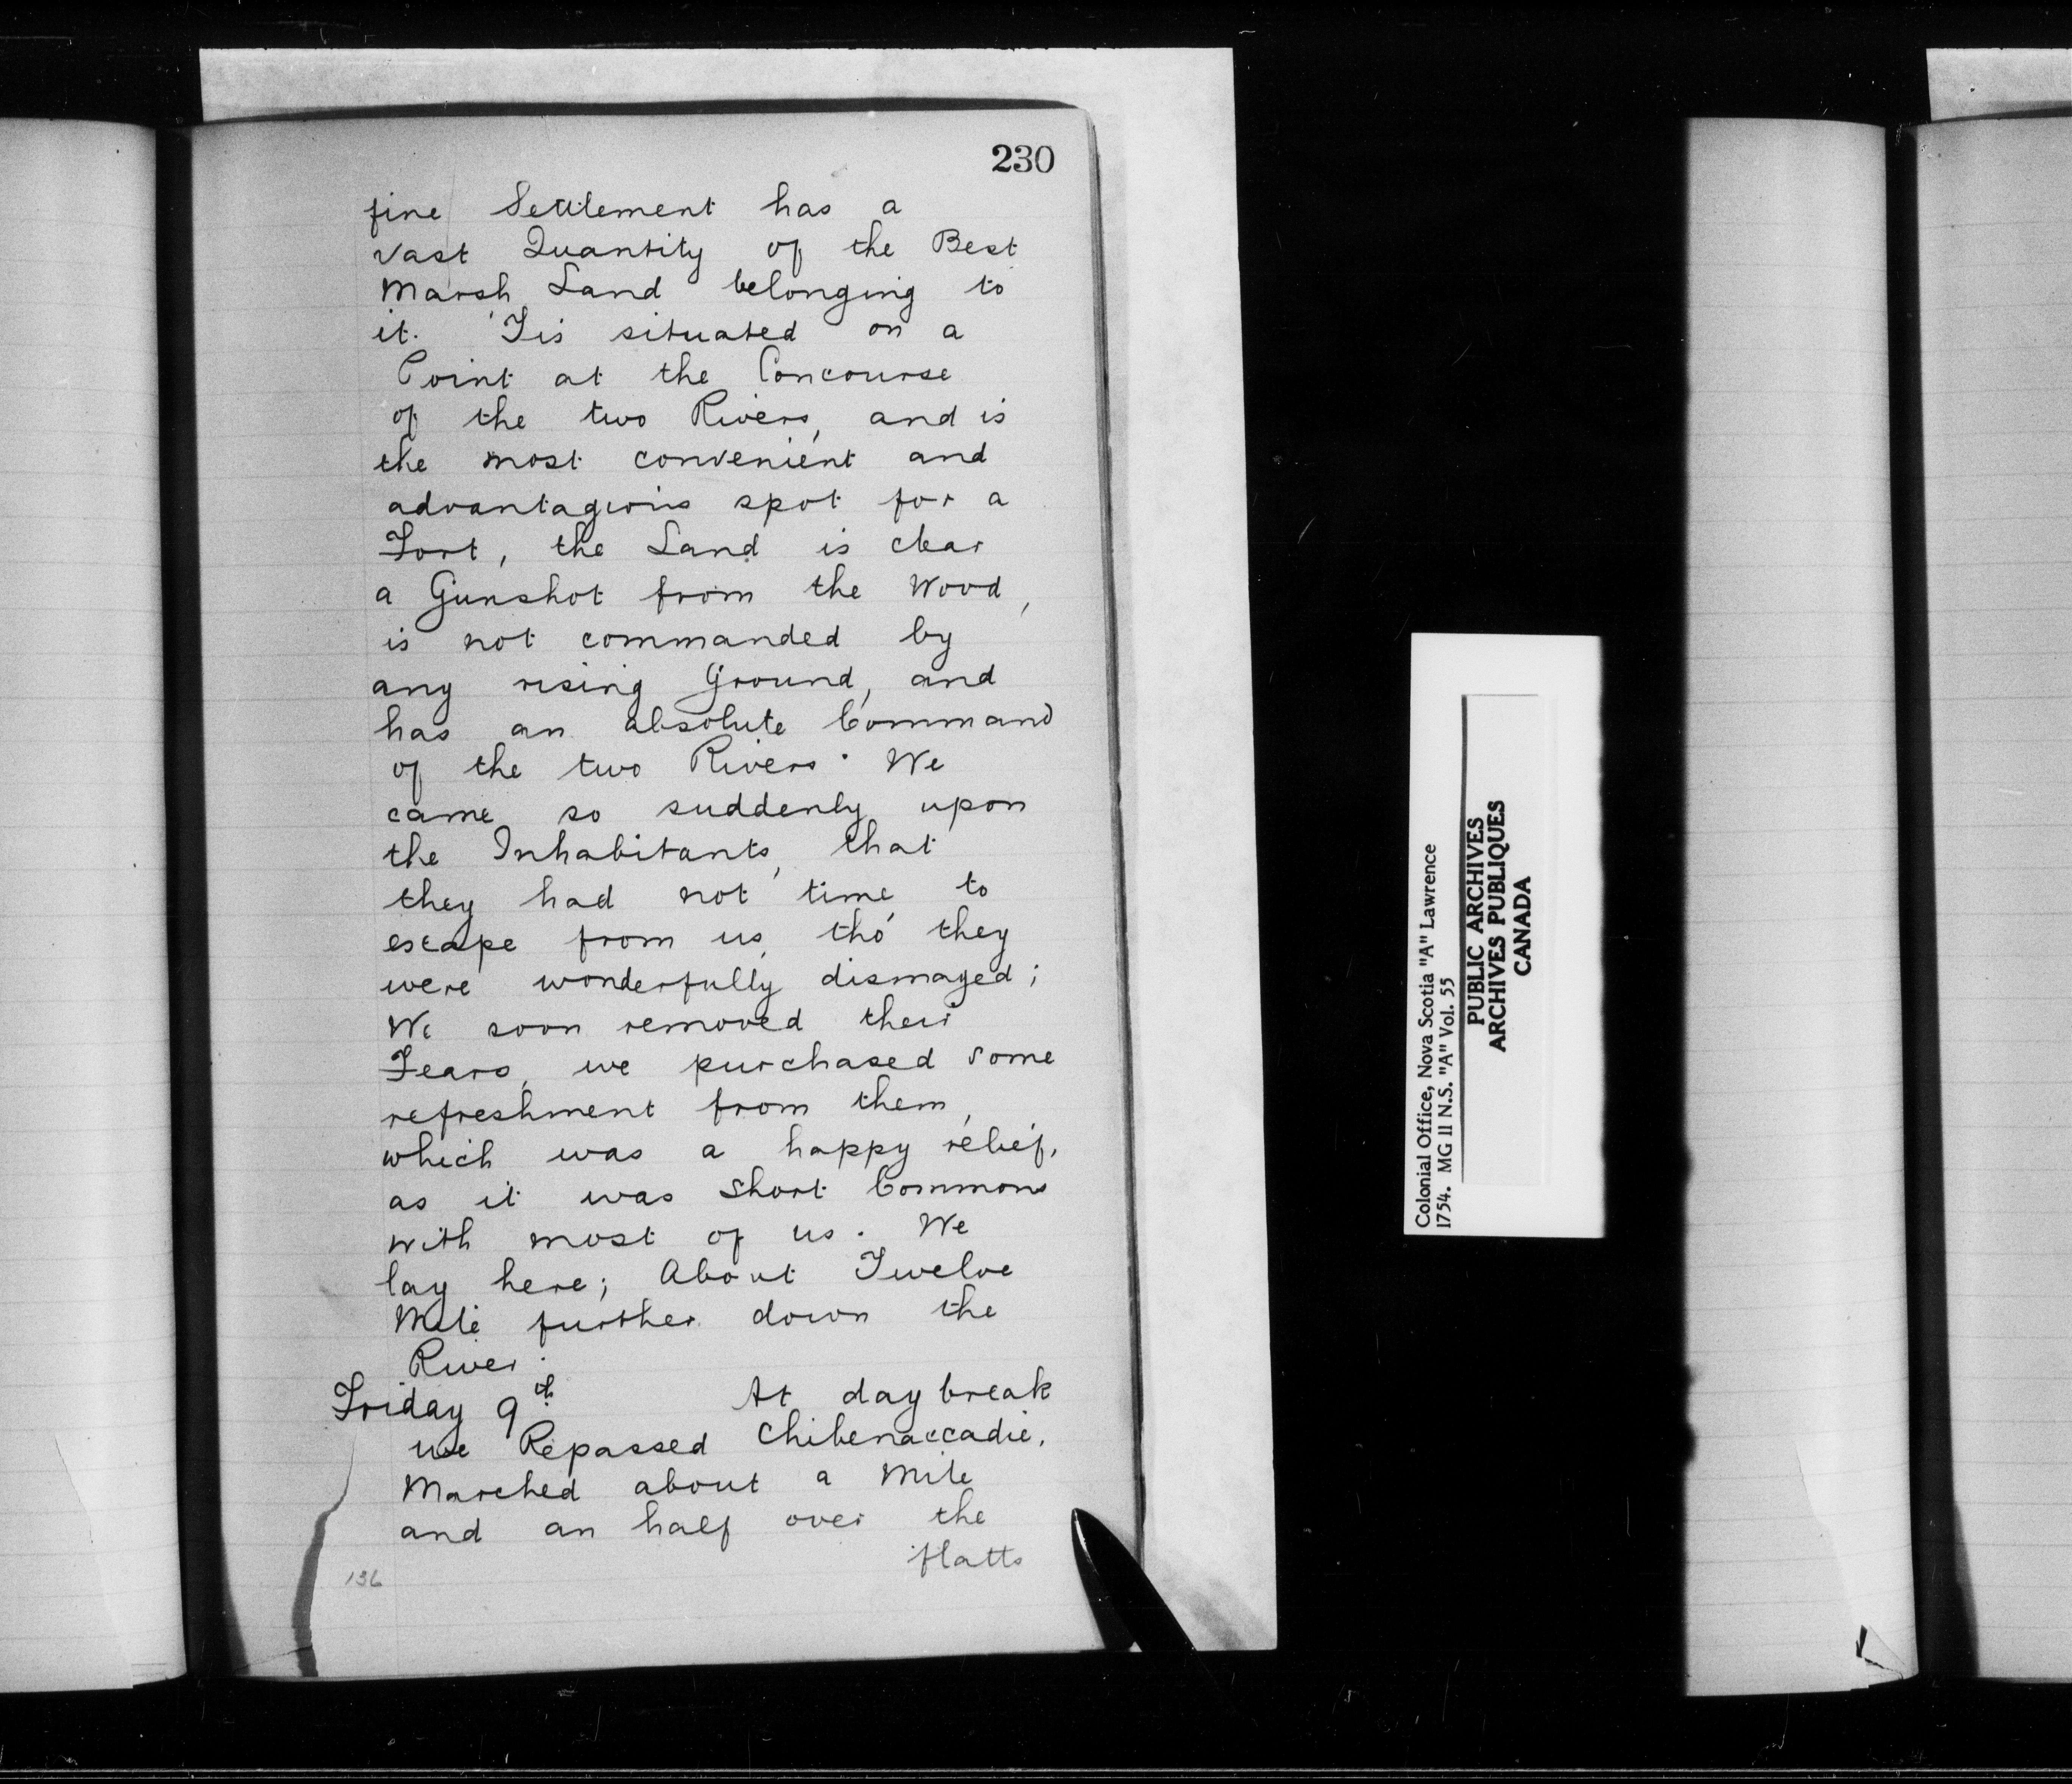 230
fine Settlement has a
vast Quantity of the Best
Marsh Land belonging to
it. 'Tis situated on a
Point at the Concourse
of the two Rivers, and is
the most convenient and
advantagious spot for a
Fort, the Land is clear
a Gunshot from the Wood,
is not commanded by
any rising Ground, and
has an absolute Command
of the two Rivers. We
came so suddenly upon
the Inhabitants, that
they had not time to
escape from us, tho' they
were wonderfully dismayed;
We soon removed their
Fears, we purchased some
refreshment from them,
which was a happy relief,
as it was Short Commons
with most of us. We
lay here; About Twelve
Mile further down the
River.
Friday 9th At day break
we Repassed Chibenaccadie,
Marched about a Mile
and an half over the
flatts
136
Colonial Office, Nova Scotia "A" Lawrence
1754. MG 11 N.S. "A" Vol. 55
PUBLIC ARCHIVES
ARCHIVES PUBLIQUES
CANADA